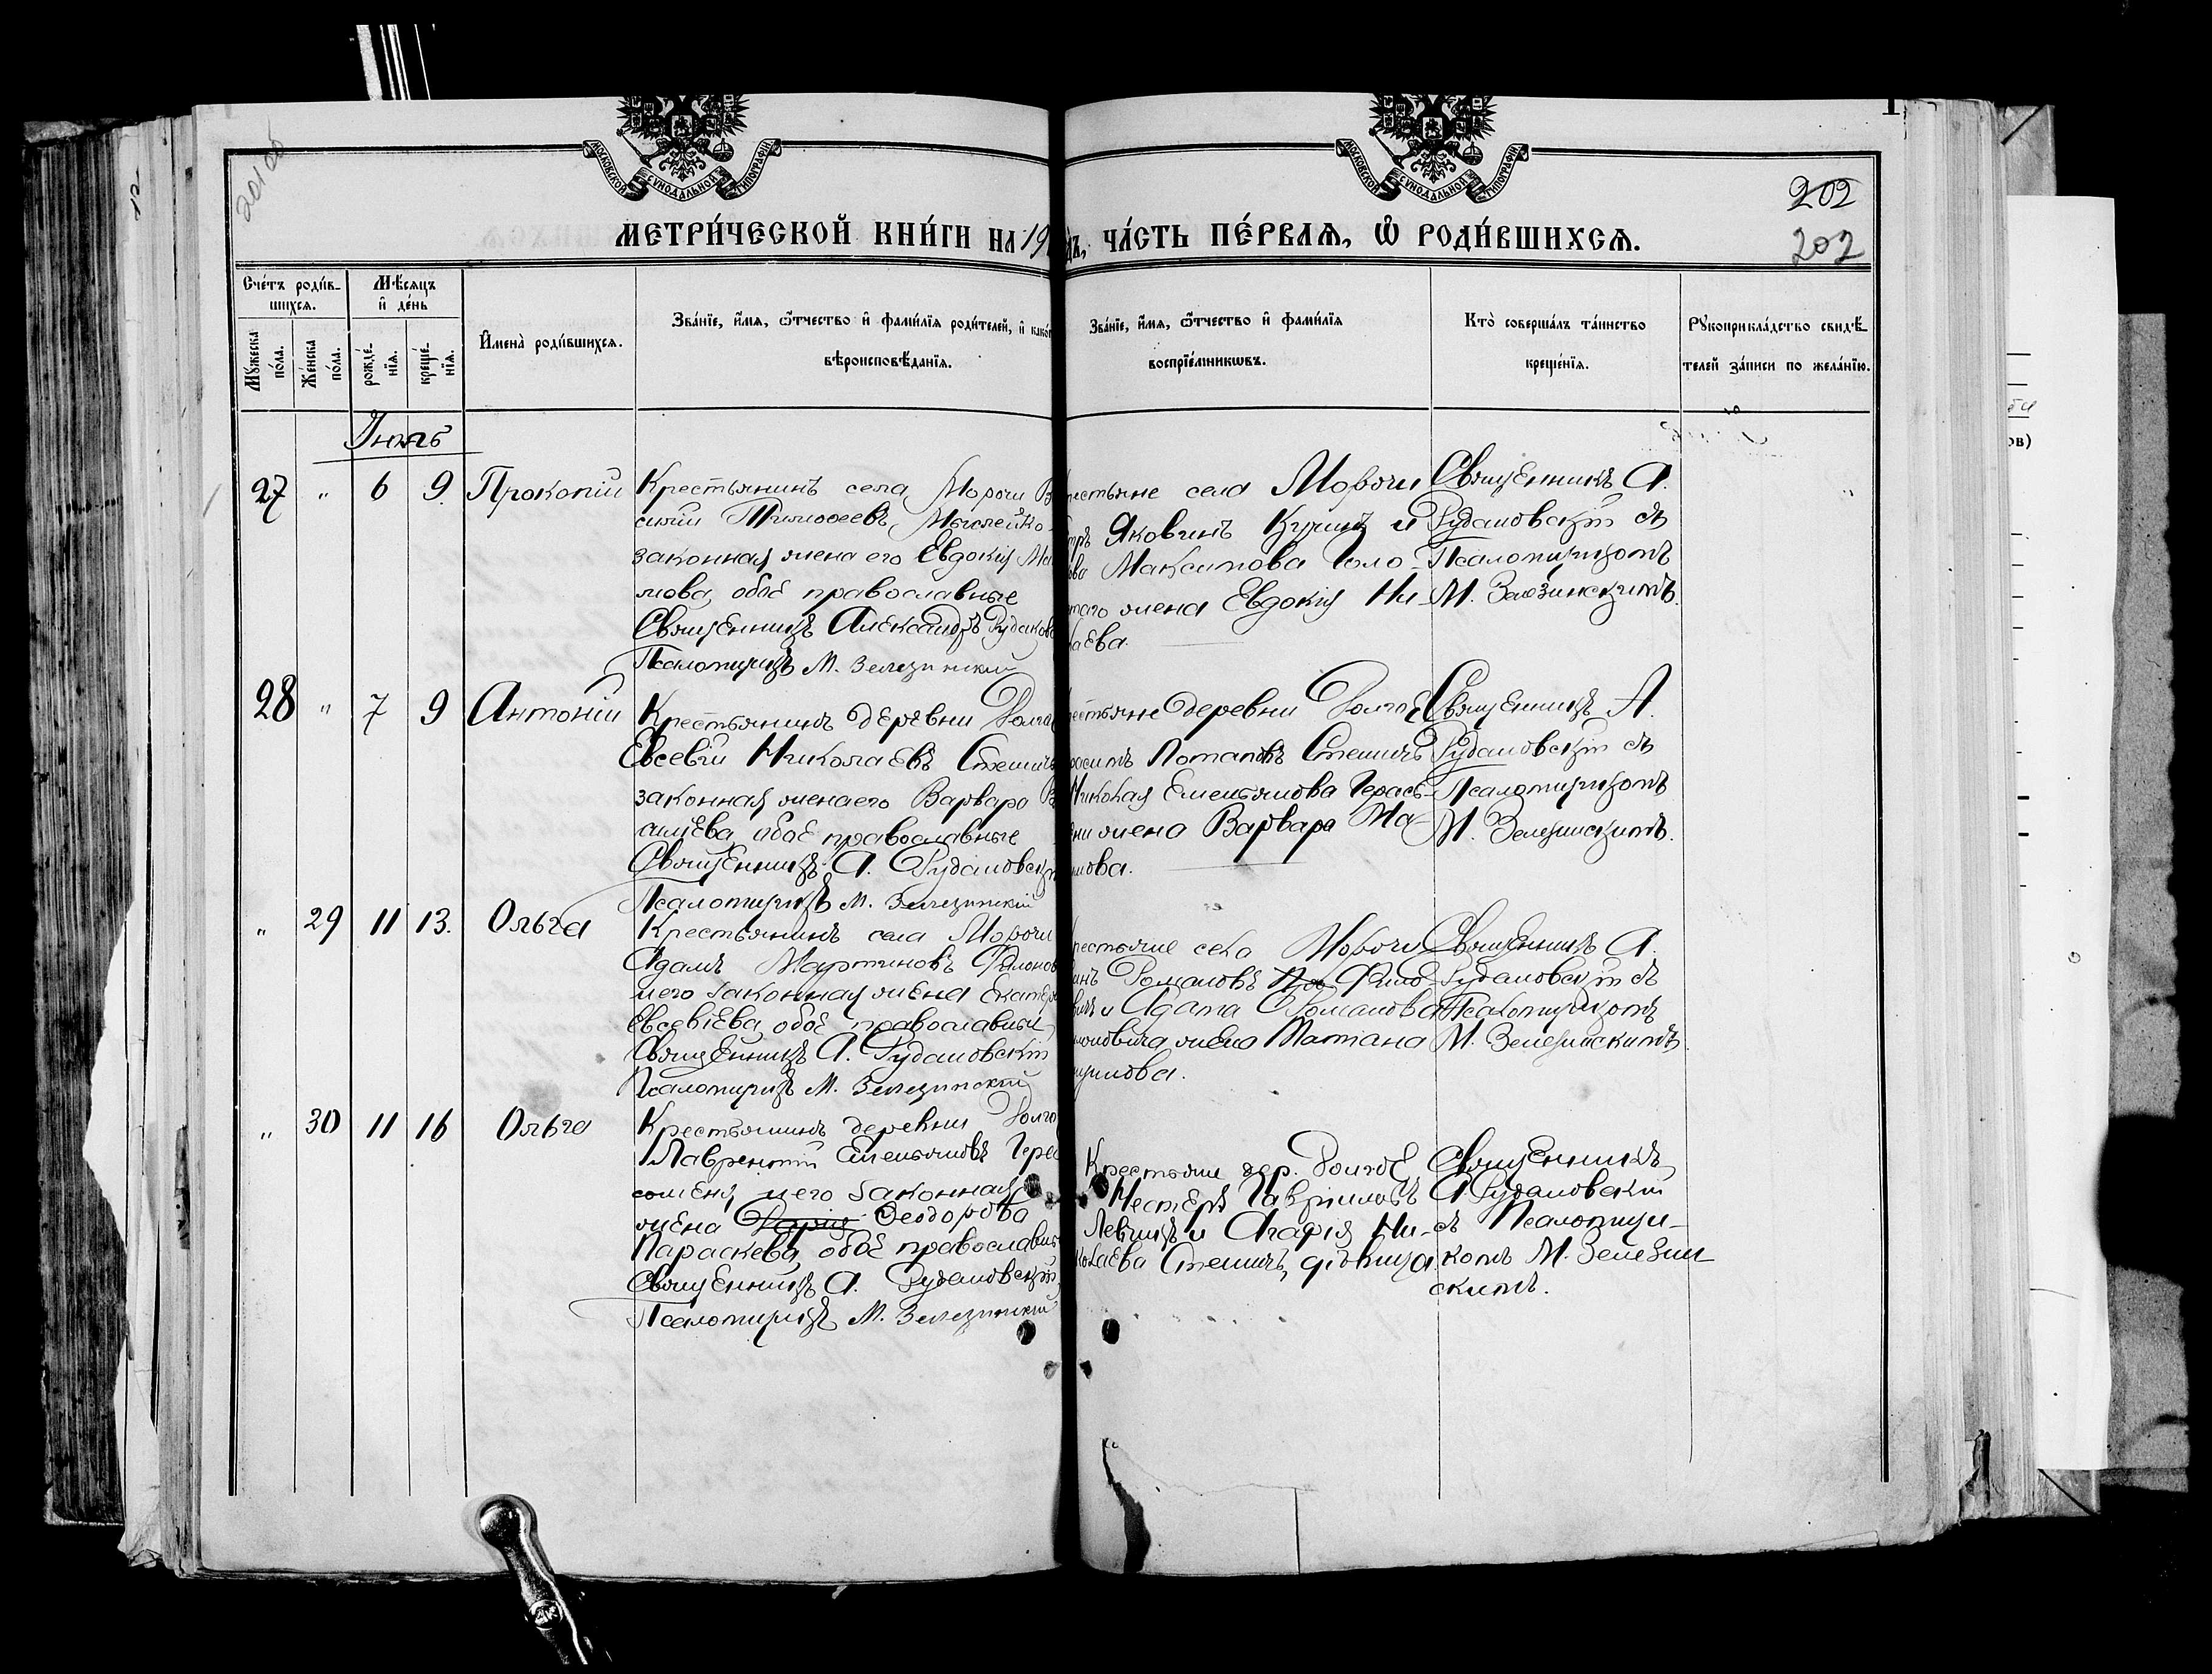 МОСКОВСКОЙ СѴНОДАЛЬНОЙ ТИПОГРАФІИ
МОСКОВСКОЙ СѴНОДАЛЬНОЙ ТИПОГРАФІИ
202
202
МЕТРИ́ЧЕСКОЙ КНИ́ГИ НА 19
ДЪ, ЧА́СТЬ ПЕ́РВАѦ, Ѡ҆ РОДИ́ВШИХСѦ.
Сче́тъ роди́в-
шихсѧ.
Мѣ́сѧцъ
и҆ де́нь
Мꙋ́жеска по́ла.
Же́нска по́ла.
рожде́-
нїѧ.
креще́-
нїѧ.
И҆мена̀ роди́вшихсѧ.
Зва́нїе, и҆́мѧ, ѻ҆́тчество и҆ фами́лїѧ роди́телей, и҆ како́
вѣроисповѣ́данїѧ.
Зва́нїе, и҆́мѧ, ѻ҆́тчество и҆ фами́лїѧ
воспрїе́мникѡвъ.
Кто̀ соверша́лъ та́инство
креще́нїѧ.
Рꙋкоприкла́дство свидѣ́-
телей за́писи по жела́нїю.
Іюль
27 " 6 9. Прокопій
Крестьянинъ села Морочи В
силій Тимофеевъ Мыслейко-
законная жена его Евдокія Ма
мова, обоє православные
Священникъ Александръ Рудаков
Псаломщикъ М. Зелезинскій
рестьяне села Морочи
Яковинъ Куриг и
Максимова Голо-
таго жена Евдокія Ни-
лаева.
Священникъ А.
Рудаковскій съ
Псаломщикомъ
М. Зелезинскимъ.
28 " 7 9 Антоній
Крестьянинъ деревни Долго
Евсевій Николаевъ Стешиць
законная жена его Варвара В
силіева, обоє православные
Священникъ А. Рудаковскі
Псаломщикъ М. Зелезинскій
рестьяне деревни Долгоє
расимъ Потаповъ Стешичъ
Николая Емельянова Герась-
ени жена Варвара Ма-
нова.
Священникъ А.
Рудаковскій съ
Псаломщикомъ
М. Зелезинскимъ.
" 29 11 13. Ольга
Крестьянинъ села Морочи
Адамъ Мартиновъ Филонов
и его законная жена Екатер
Евсевіева, обоє православные
Священникъ А. Рудаковскій
Псаломщикъ М. Зелезинскій
рестьяне села Морочи
Романовъ Фило-
вичъ и Адама Романова
лоновича жена Татіана
Священникъ А.
Рудаковскій съ
Псаломщикомъ
М. Зелезинскимъ
" 30 11 16 Ольга
Крестьянинъ деревни Долго
Лаврентій Емельяновъ Герас
сименя и его законная
жена Дарія Ѳеодорова
Параскева, обоє православны
Священникъ А. Рудаковскій
Псаломщикъ М. Зелезинскій
Крестьяне дер. Долгоє
Нестеръ Гавріиловъ
Левшикъ и Агафія Ни-
колаева Стешичъ, дѣвица
Священникъ
А. Рудаковскій
съ Псаломщи-
комъ М. Зелезин
скимъ.